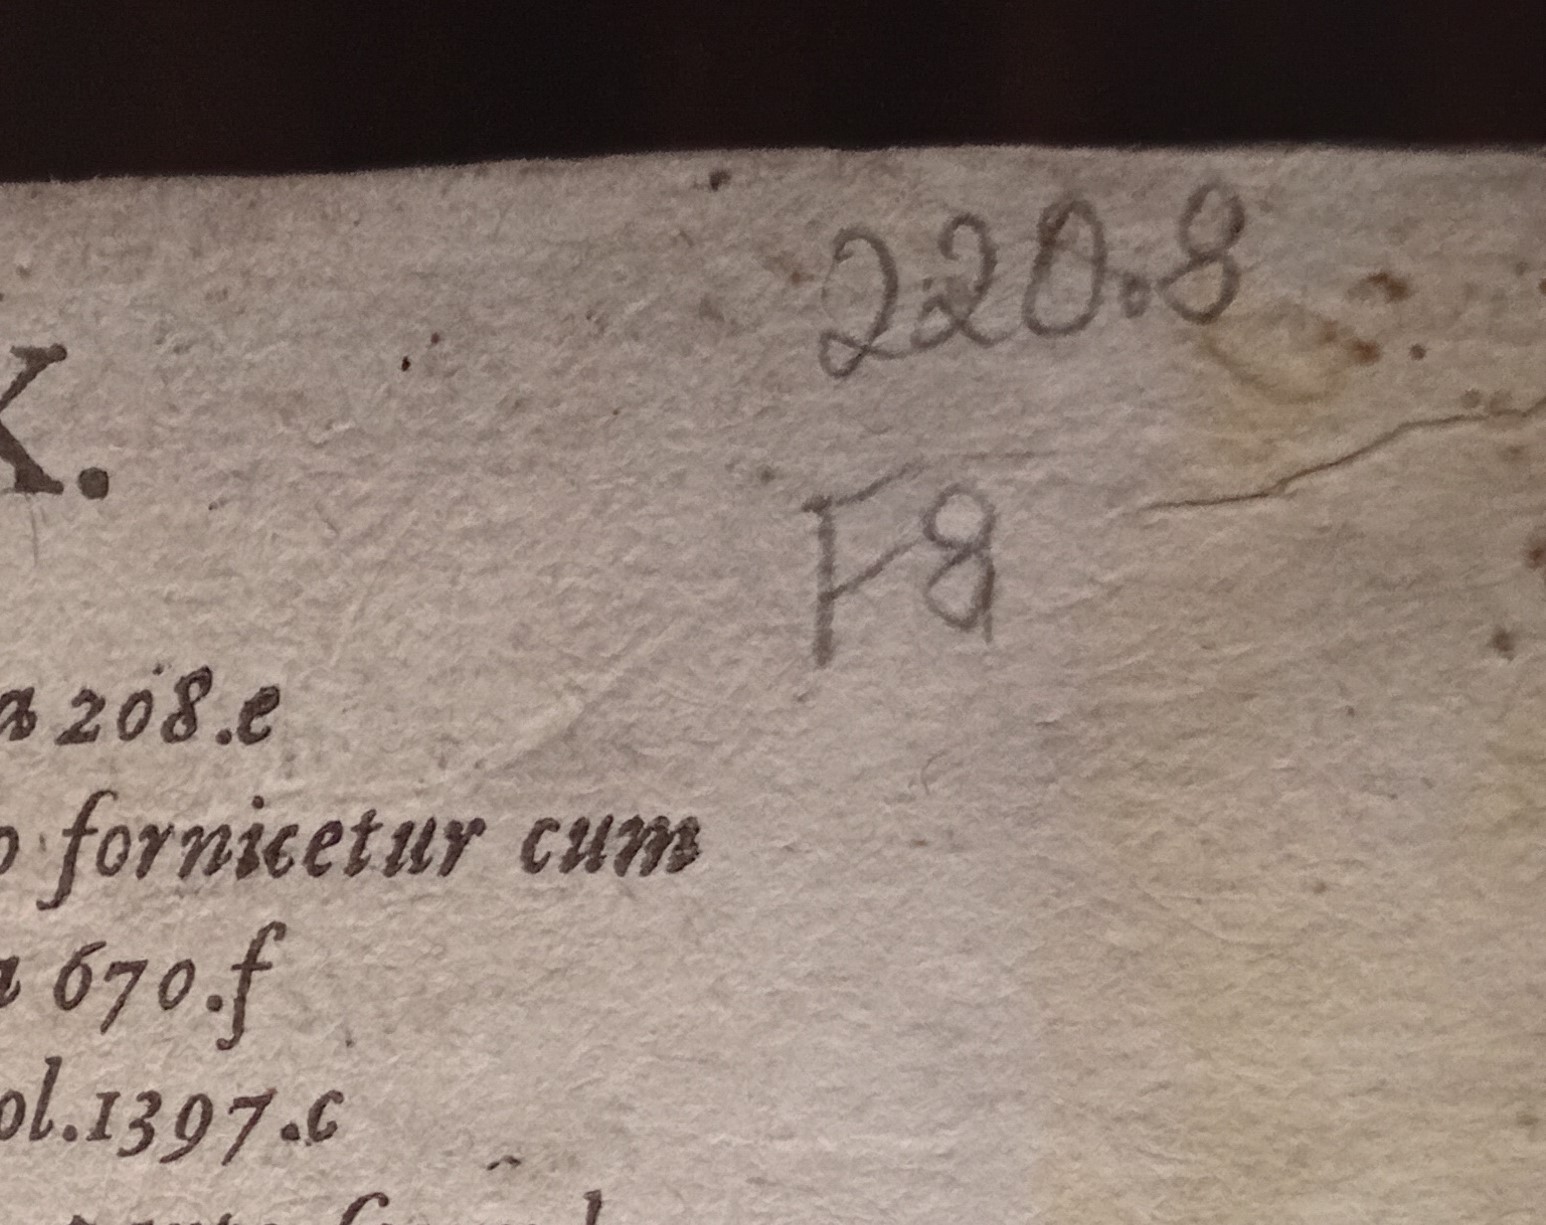 220.8
X.
F8
a 208.e
o fornicetur cum
a 670.f
ol.1397.c